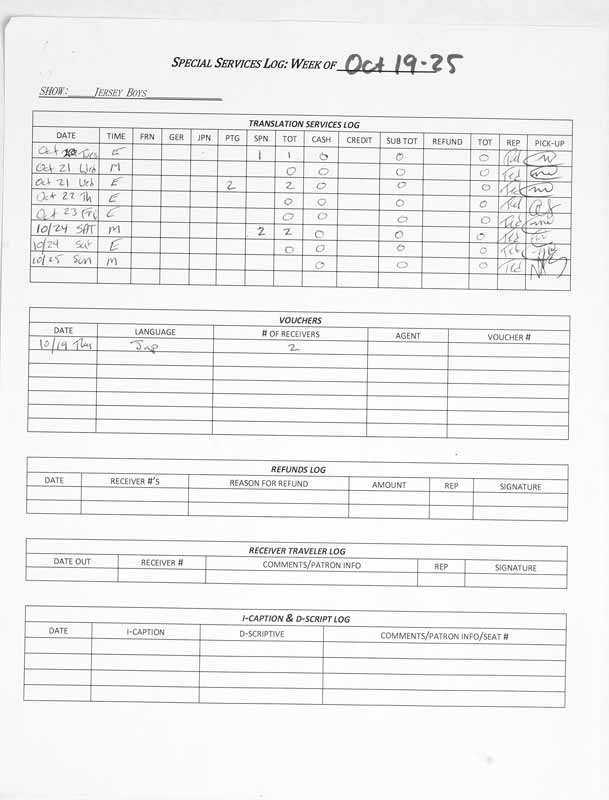 SPECIAL SERVICES LOG: WEEK OF Oct 19-25
SHOW: JERSEY BOYS
TRANSLATION SERVICES LOG
DATE TIME FRN GER JPN PTG SPN TOT CASH CREDIT SUB TOT REFUND TOT REP PICK-UP
Oct Tues E 1 1 0 0 0 Ted
Oct 21 Wed M 0 0 0 0 Ted
Oct 21 Wed E 2 2 0 0 0 Ted
Oct 22 Th E 0 0 0 0 Ted
Oct 23 Fri E 0 0 0 0 Ted
10/24 SAT M 2 2 0 0 0 Ted
10/24 Sat E 0 0 0 0 Ted
10/25 Sun M 0 0 0 Ted
VOUCHERS
DATE LANGUAGE # OF RECEIVERS AGENT VOUCHER #
10/19 Jap 2
REFUNDS LOG
DATE RECEIVER #'S REASON FOR REFUND AMOUNT REP SIGNATURE
RECEIVER TRAVELER LOG
DATE OUT RECEIVER # COMMENTS/PATRON INFO REP SIGNATURE
I-CAPTION & D-SCRIPT LOG
DATE I-CAPTION D-SCRIPTIVE COMMENTS/PATRON INFO/SEAT #